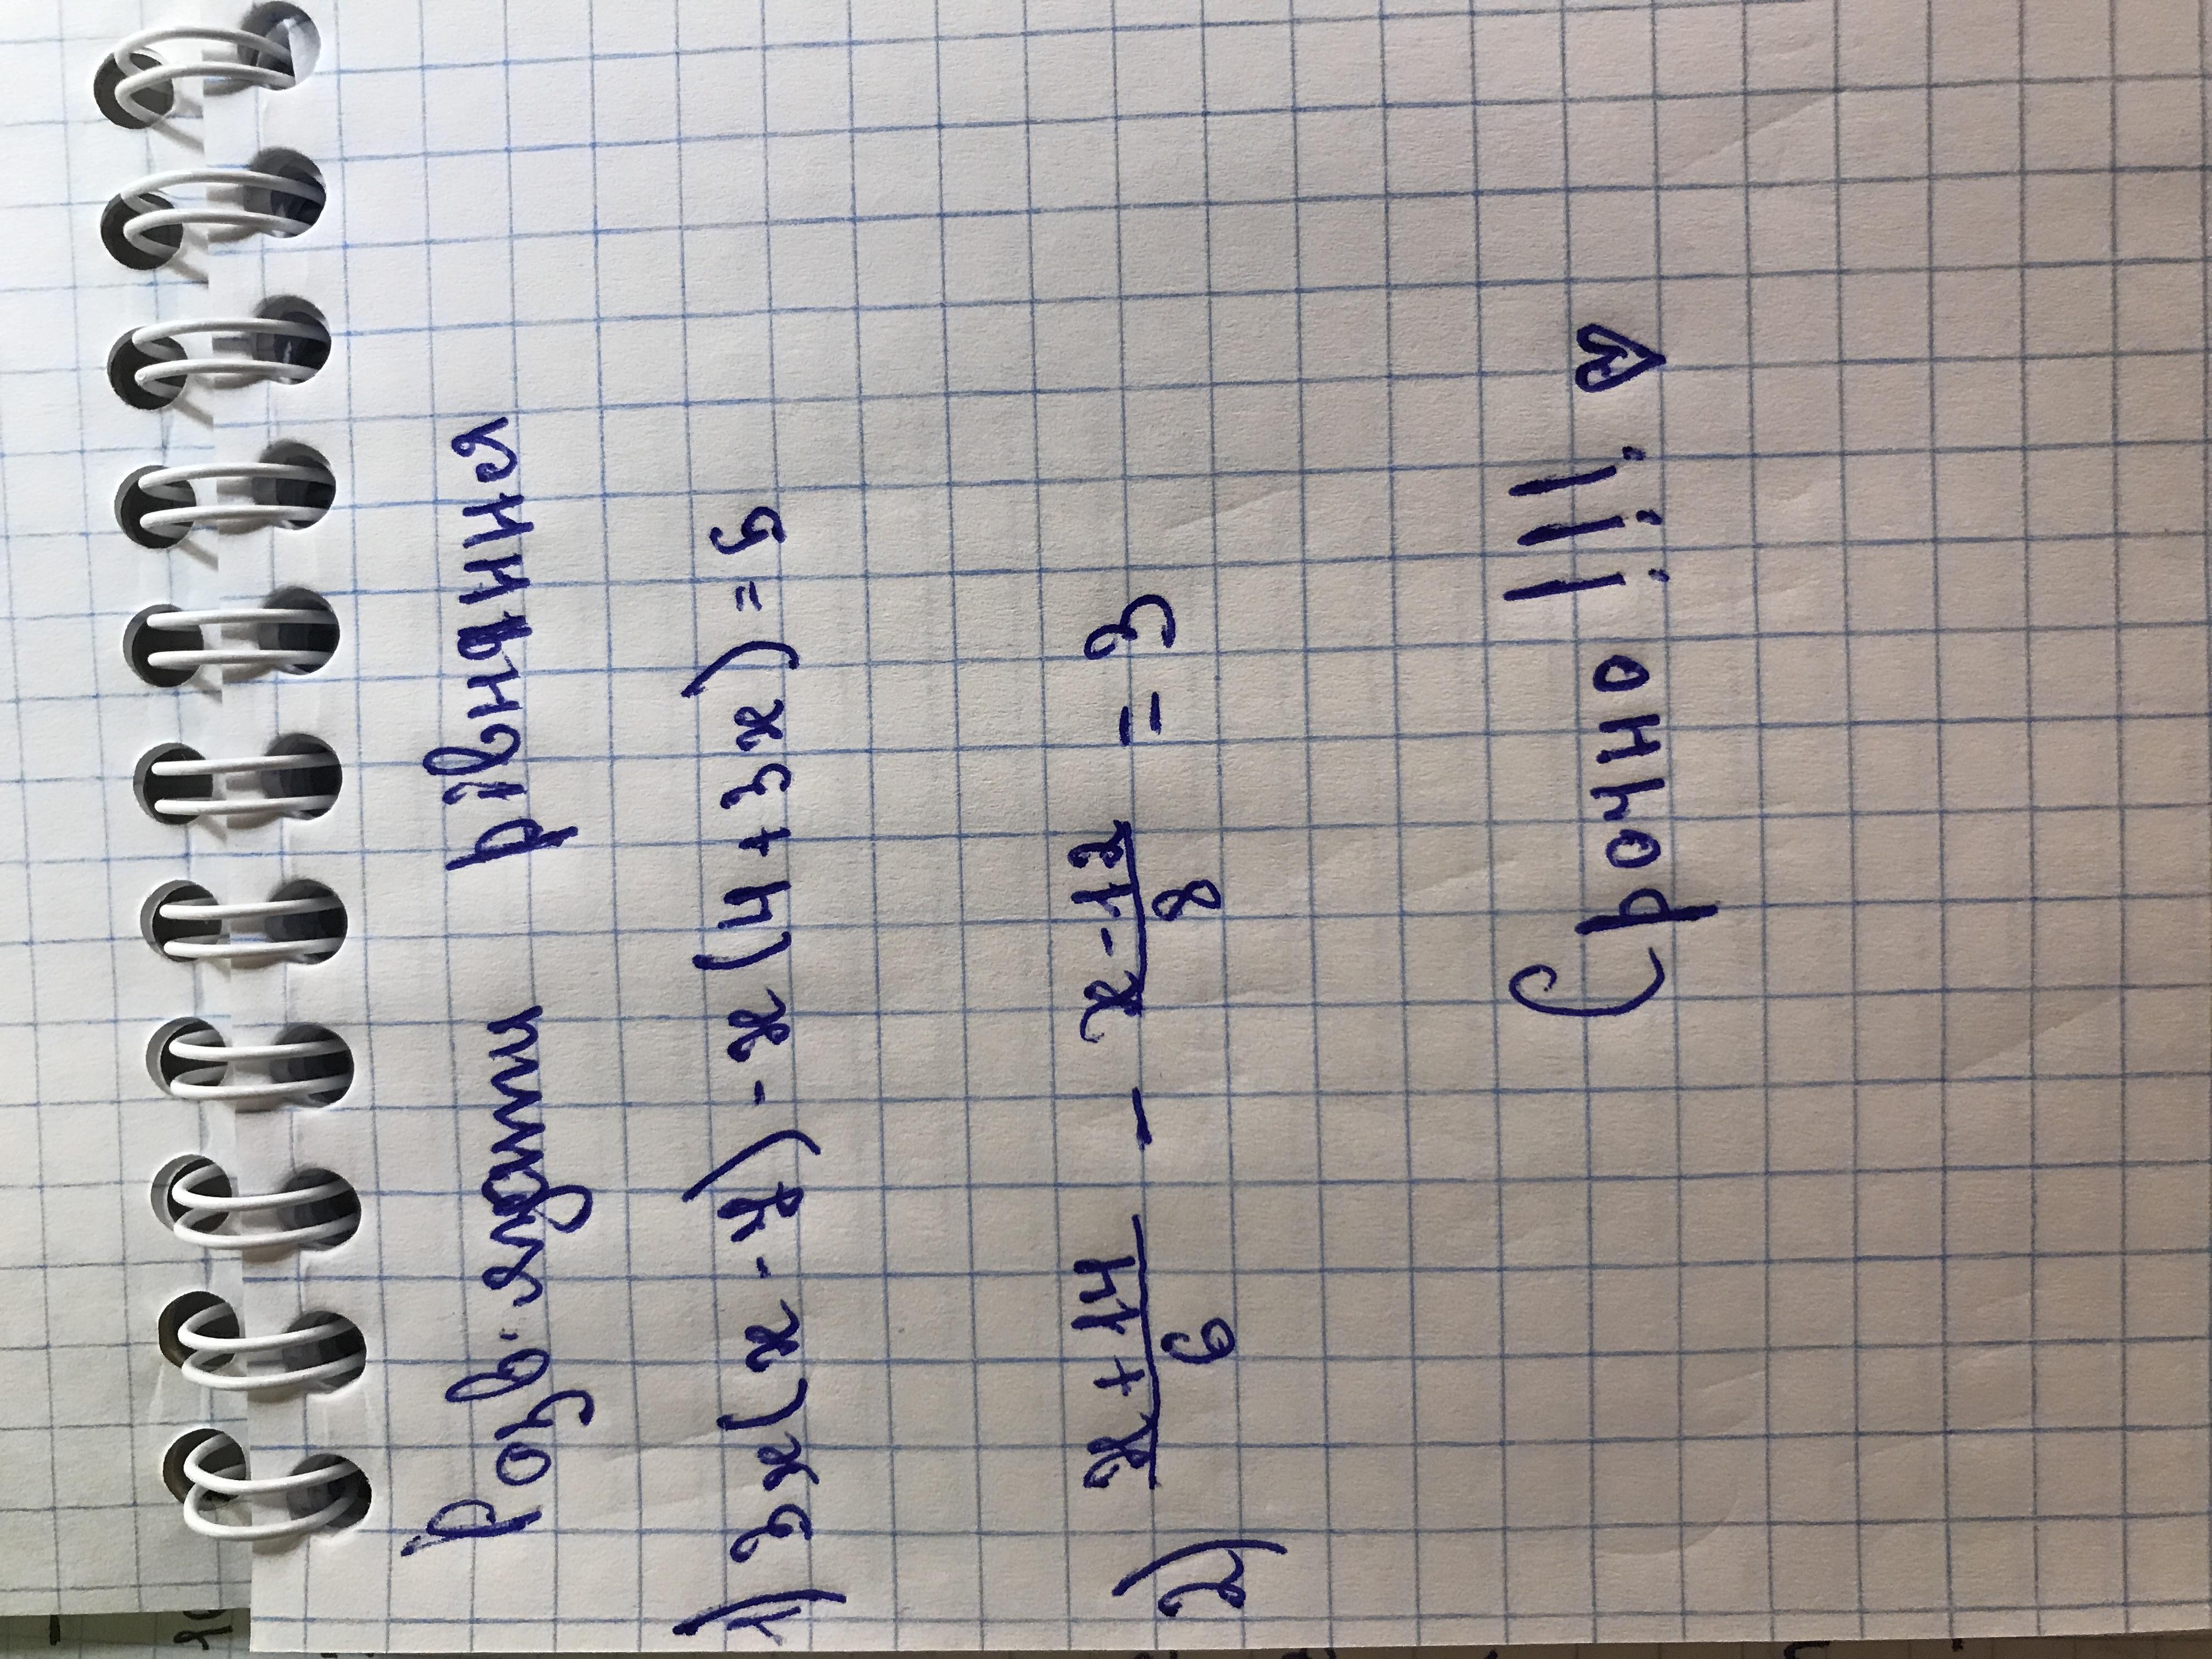 Розв'язати рівняння
1) 3x(x-7)-x(4+3x)=5
2) x+14/6 - x-12/8 = 3
Срочно !!! ♡